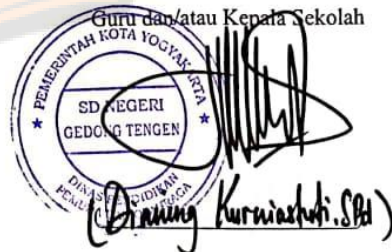 Guru dan/atau Kepala Sekolah
PEMERINTAH KOTA YOGYAKARTA
SD NEGERI
GEDONG TENGEN
DINAS PENDIDIKAN
PEMUDA OLAHRAGA
(Dianing Kurniastuti.SPd)